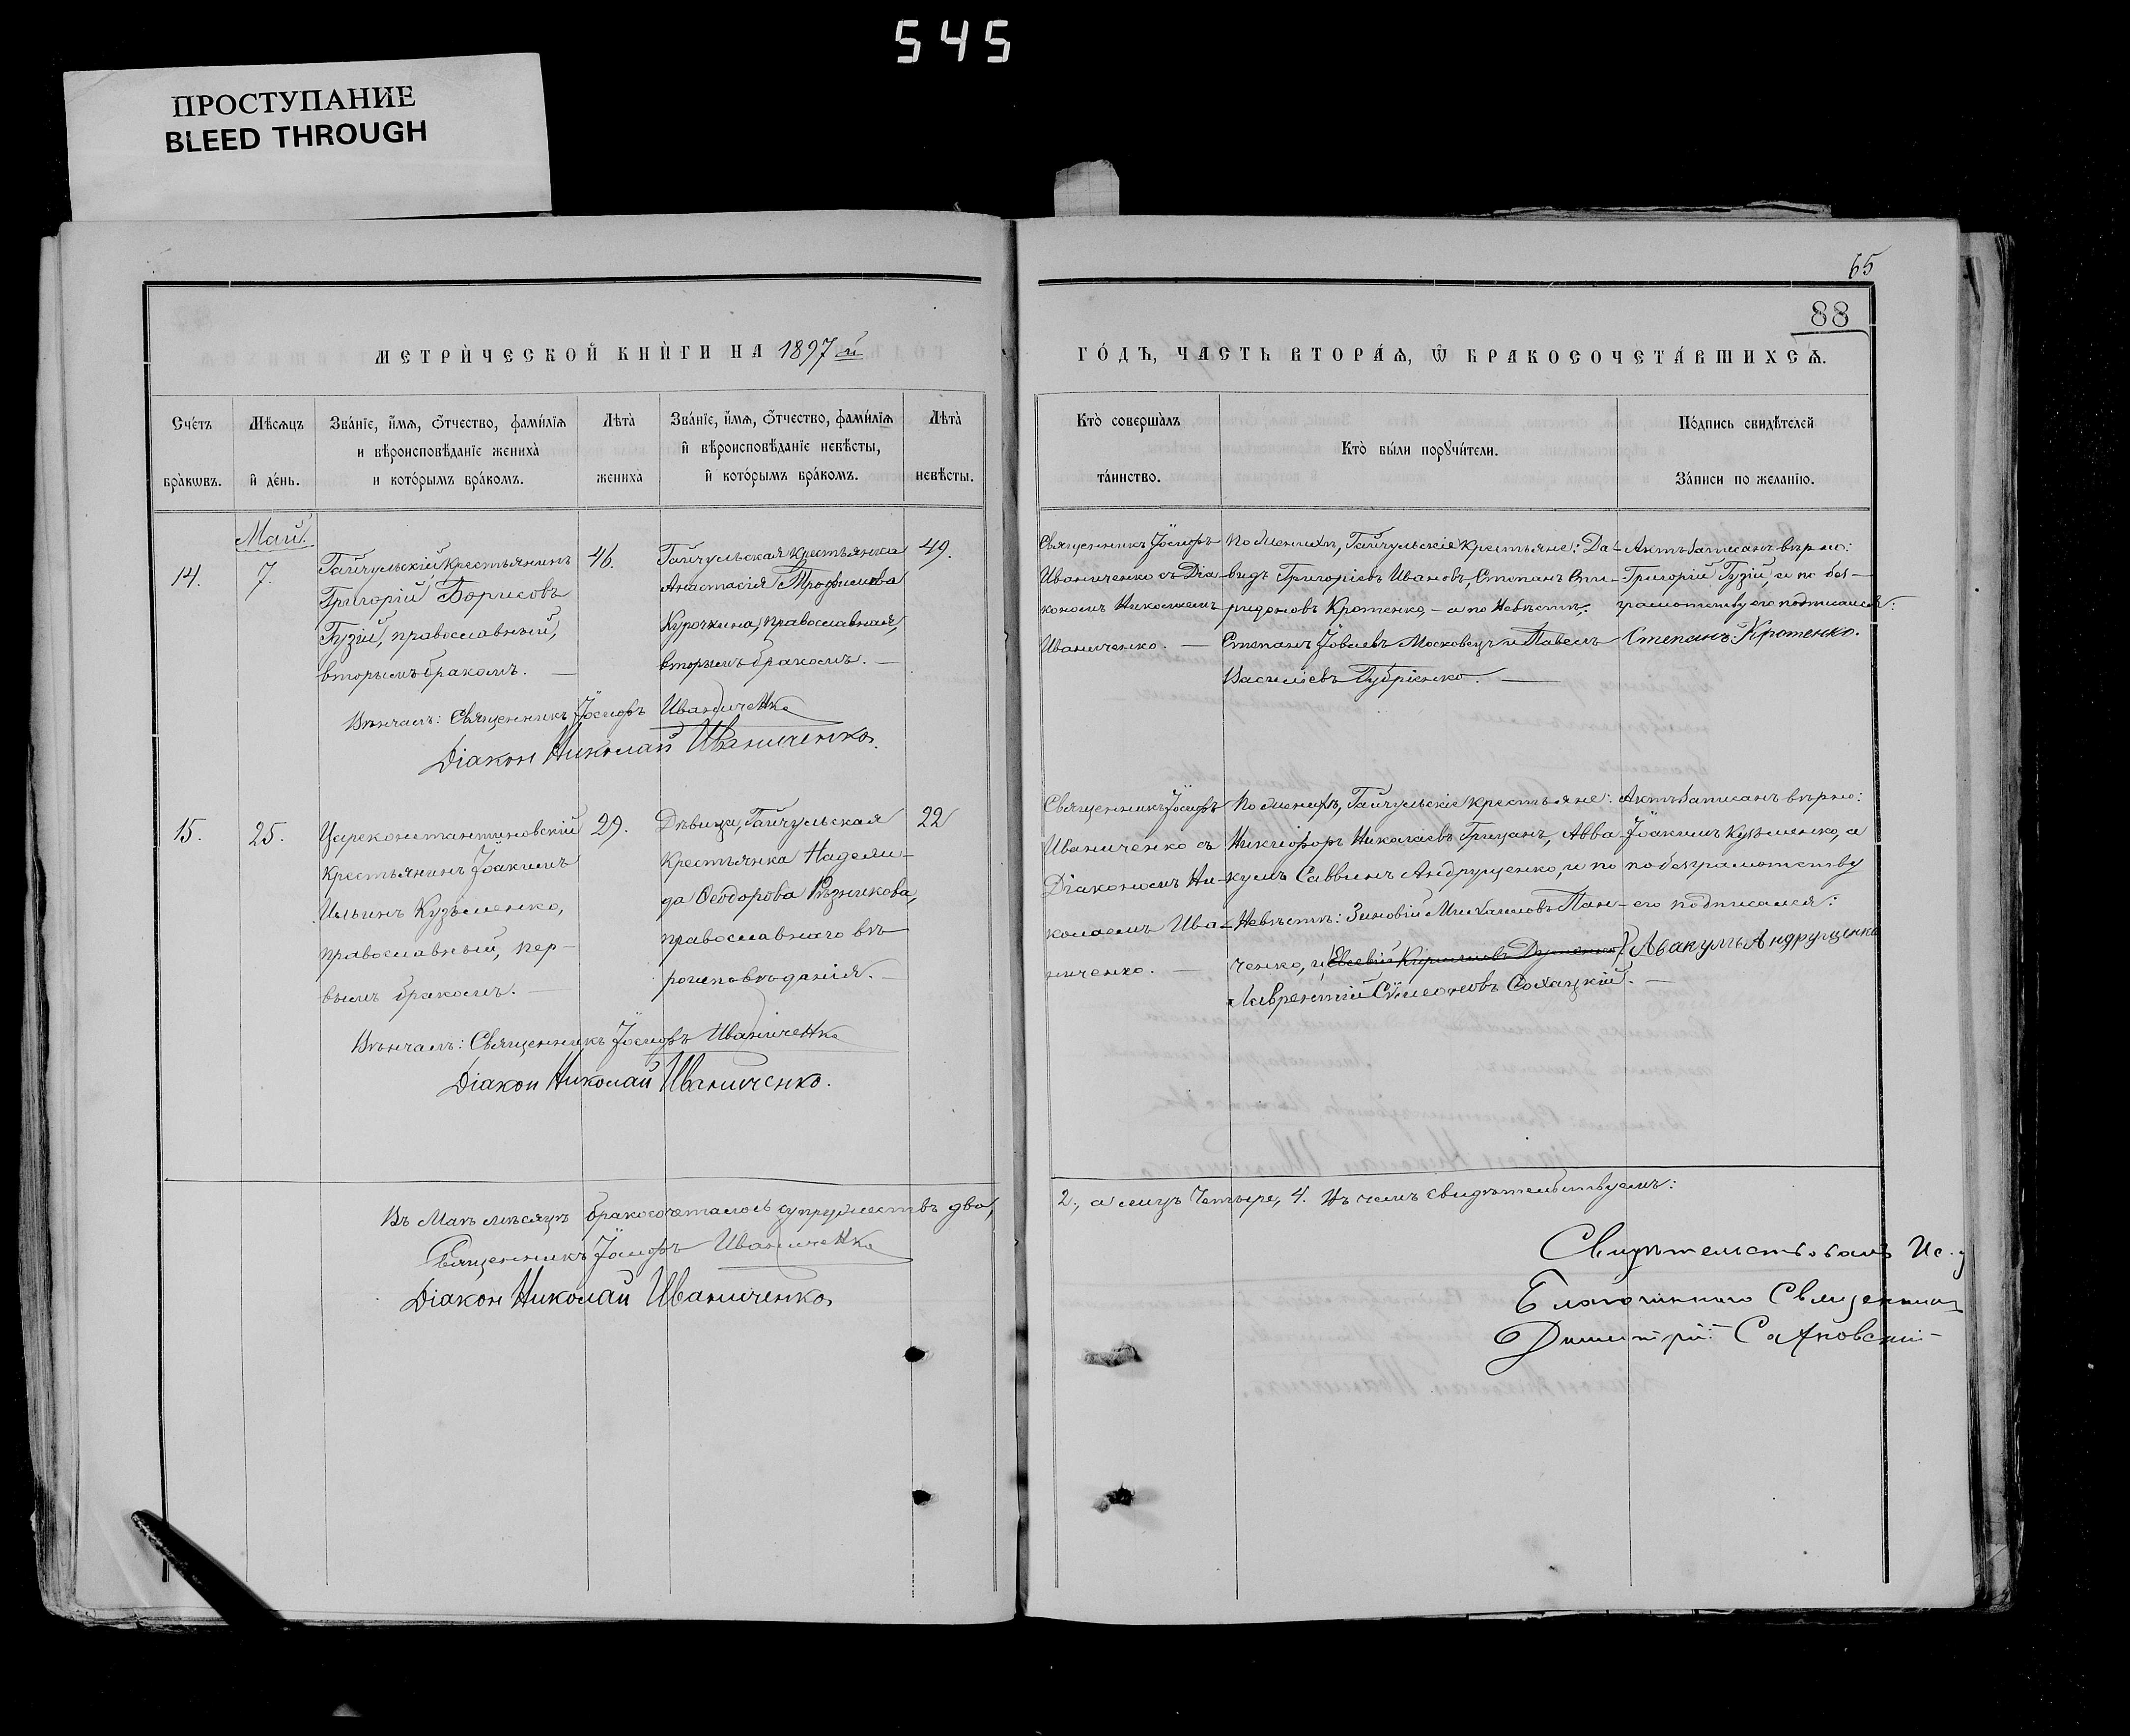 545
ПРОСТУПАНИЕ
BLEED THROUGH
65
88
МЕТРИ́ЧЕСКОЙ КНИ́ГИ НА 1897й
ГО́ДЪ, ЧАСТЬ ВТОРА́Ѧ, Ѡ БРАКОСОЧЕТА́ВШИХСѦ.
Сче́тъ бра́кѡвъ.
Мѣ́сѧцъ и҆ де́нь.
Зва́нїе, и҆́мѧ, ѻ҆́тчество, фами́лїѧ
и вѣроисповѣ́данїе жениха̀
и кото́рымъ бра́комъ.
Лѣта̀ жениха̀
Зва́нїе, и҆́мѧ, ѻ҆́тчество, фами́лїѧ
и҆ вѣроисповѣ́данїе невѣ́сты,
и҆ кото́рымъ бра́комъ.
Лѣта̀ невѣ́сты.
Кто̀ соверша́лъ
та́инство.
Кто̀ бы́ли порꙋчи́тели.
По́дпись свидѣ́телей
За́писи по жела́нїю.
Май.
14.
7.
Гайчульскій крестьянинъ
Григорій Борисовъ
Гузій, православный,
вторымъ бракомъ. —
46.
Гайчульская крестьянка
Анастасія Трофимова
Курочкина, православная,
вторымъ бракомъ. —
49.
Священникъ Іосифъ
Иваниченко съ Діа-
кономъ Николаемъ
Иваниченко. —
По женихѣ, Гайчульскіе крестьяне: Да-
видъ Григоріевъ Ивановъ, Степанъ Спи-
ридоновъ Кротенко, — а по Невѣстѣ:
Степанъ Іовлевъ Московецъ и Павелъ
Василіевъ Губріенко. —
Актъ записанъ вѣрно:
Григорій Гузій, а по без-
грамотству его подписался:
Степанъ Кротенко.
Вѣнчалъ: Священникъ Іосифъ Иваниченко
Діакон Николай Иваниченко.
15.
25.
Цареконстантиновскій
крестьянинъ Іоакимъ
Ильинъ Кузьменко,
православный, пер-
вымъ бракомъ. —
29.
Дѣвица, Гайчульская
крестьянка Надежи-
да Ѳеодорова Рѣзникова,
православнаго вѣ-
роисповѣданія. —
22
Священникъ Іосифъ
Иваниченко съ
Діакономъ Ни-
колаемъ Ива-
ниченко. —
По женихѣ, Гайчульскіе крестьяне:
Никифоръ Николаевъ Грицанъ, Авва-
кумъ Саввинъ Андрущенко, и по
Невѣстѣ: Зиновій Михаиловъ Пан-
ченко, и Евсевій Кириловъ
Лаврентій Сѵмеоновъ Сохацкій. —
Актъ записанъ вѣрно:
Іоакимъ Кузьменко, а
по безграмотству
его подписался:
Авакумъ Андрущенко
Вѣнчалъ: Священникъ Іосифъ Иваниченко
Діакон Николай Иваниченко.
Въ Маѣ мѣсяцѣ бракосочеталось супружествъ два, 2., а лицъ четыре, 4. Въ чемъ свидѣтельствуемъ:
Священникъ Іосифъ Иваниченко
Діакон Николай Иваниченко
Свидѣтельствовалъ Ис. д.
Благочиннаго Священникъ
Димитрій Сахновскій